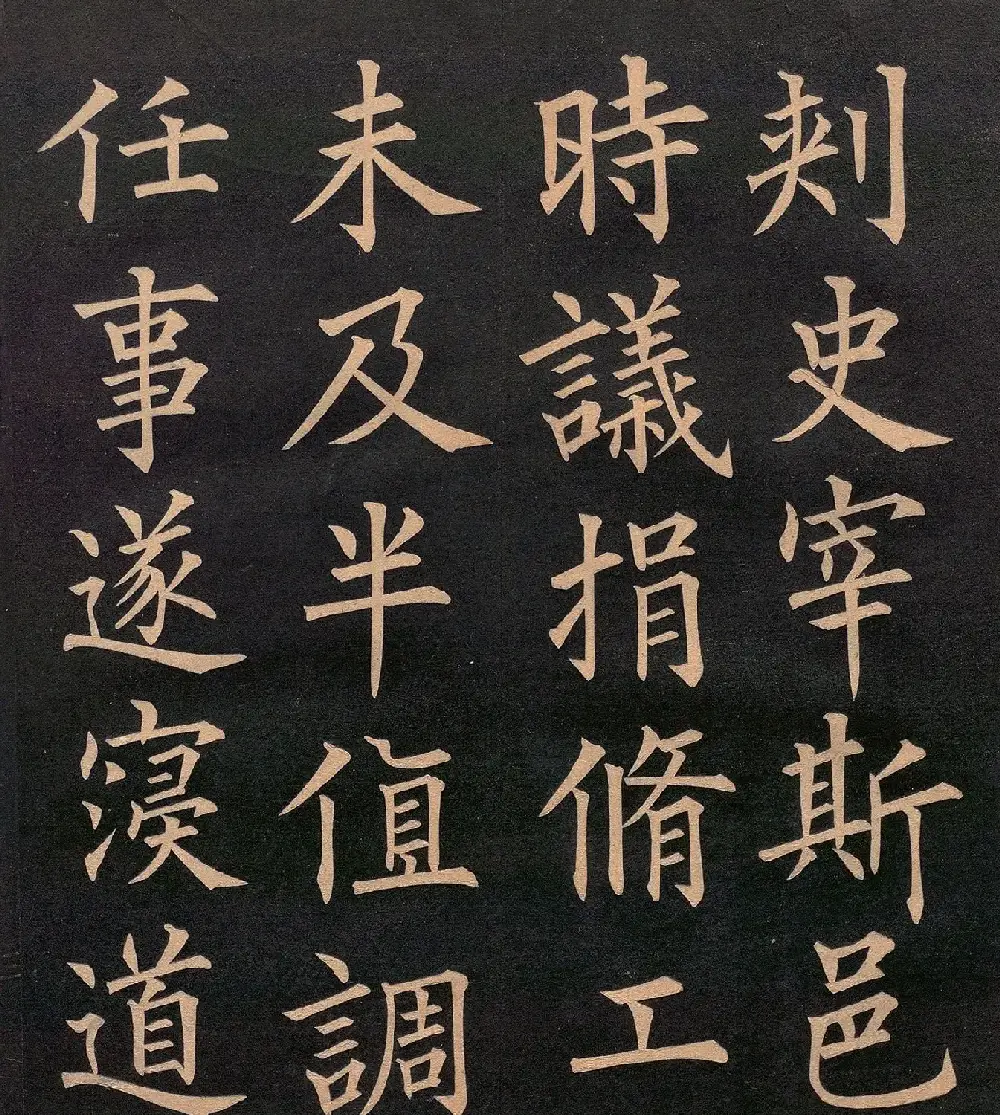 刾史宰斯邑
時議捐脩工
未及半值調
任事遂寑道